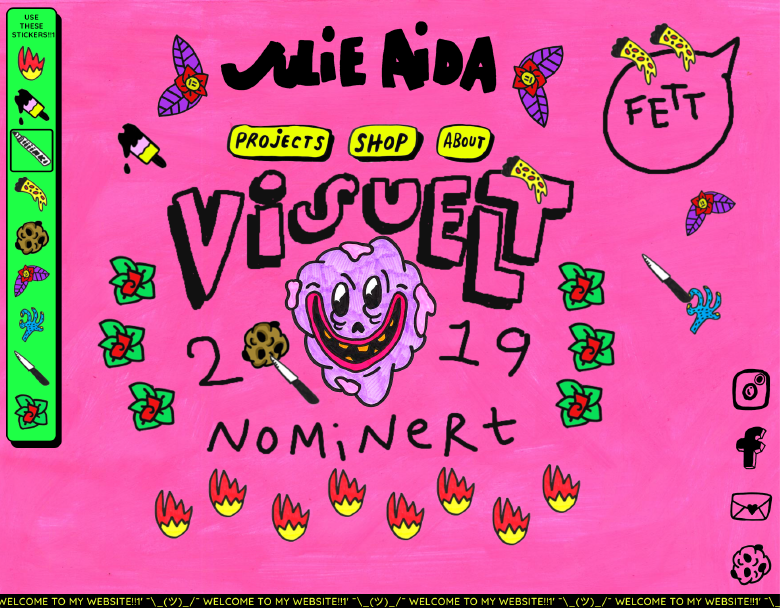 USE
THESE
STICKERS!!1
JULiE AiDA
FETT
PROJECTS SHOP ABOUT
ViSUELT
2019
NOMiNeRt
WELCOME TO MY WEBSITE!!1' ¯\_(ツ)_/¯ WELCOME TO MY WEBSITE!!1' ¯\_(ツ)_/¯ WELCOME TO MY WEBSITE!!1' ¯\_(ツ)_/¯ WELCOME TO MY WEBSITE!!1' ¯\_(ツ)_/¯ WELCOME TO MY WEBSITE!!1'